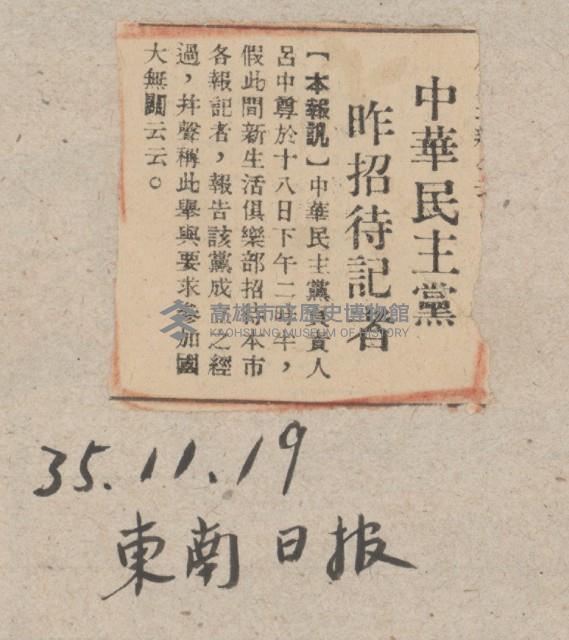 中華民主黨
昨招待記者
【本報訊】中華民主黨負責人
呂中尊於十八日下午二時半，
假此間新生活俱樂部招待本市
各報記者，報告該黨成立之經
過，幷聲稱此舉與要求參加國
大無關云云。
高雄市立歷史博物館
KAOHSIUNG MUSEUM OF HISTORY
35.11.19
東南日报